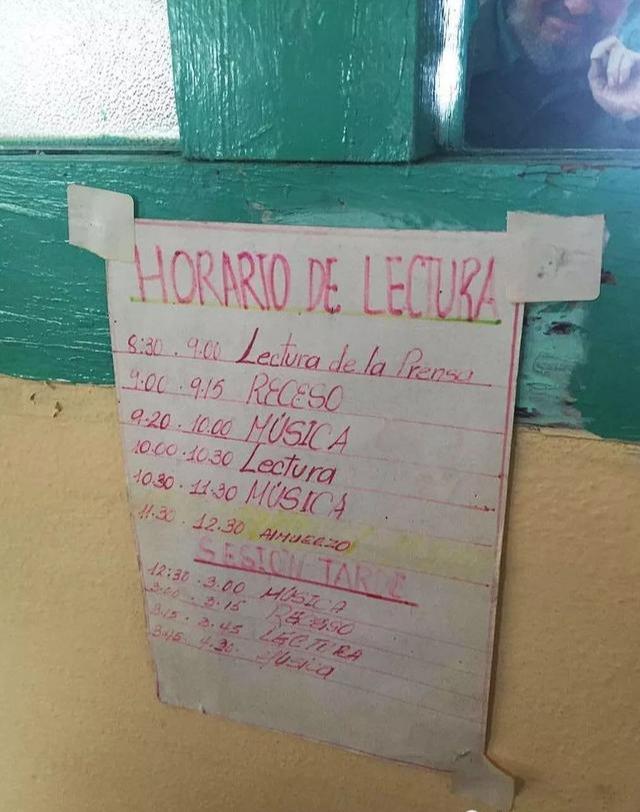 HORARIO DE LECTURA
8:30 . 9:00 Lectura de la Prensa
9:00 . 9:15 RECESO
9:20 . 10:00 MÚSICA
10:00 . 10:30 Lectura
10:30 . 11:30 MÚSICA
11:30 . 12:30 ALMUERZO
SESION TARDE
12:30 . 3:00 MÚSICA
3:00 . 3:15 RECESO
3:15 . 3:45 LECTURA
3:45 . 4:30 Música